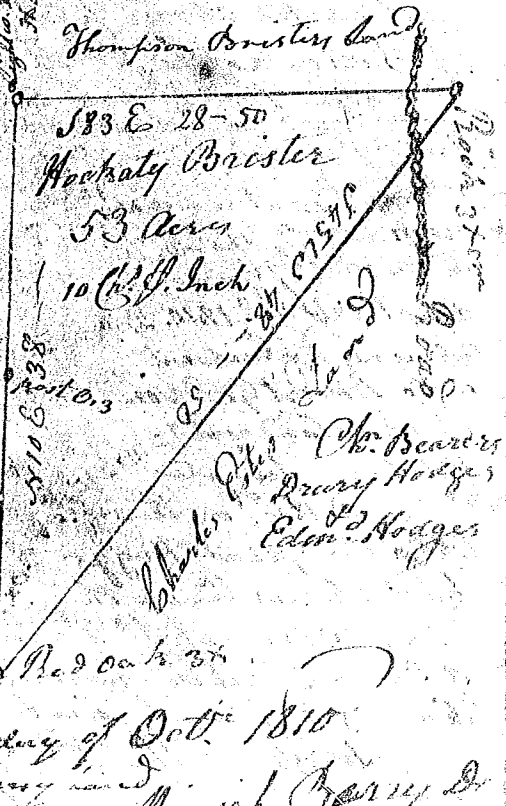 Thompson Bristers Land
S83 E 28-50
Hockaty Brister
53 Acres
10 Chs. P. Inch
N10E 38
Post O 3
S45W 48-50
Charles Land
Rock 3x
Road
Chn. Bearers
Drury Hodges
&
Edmd. Hodges
Red oak 3x
day of Octr. 1810
Berry D